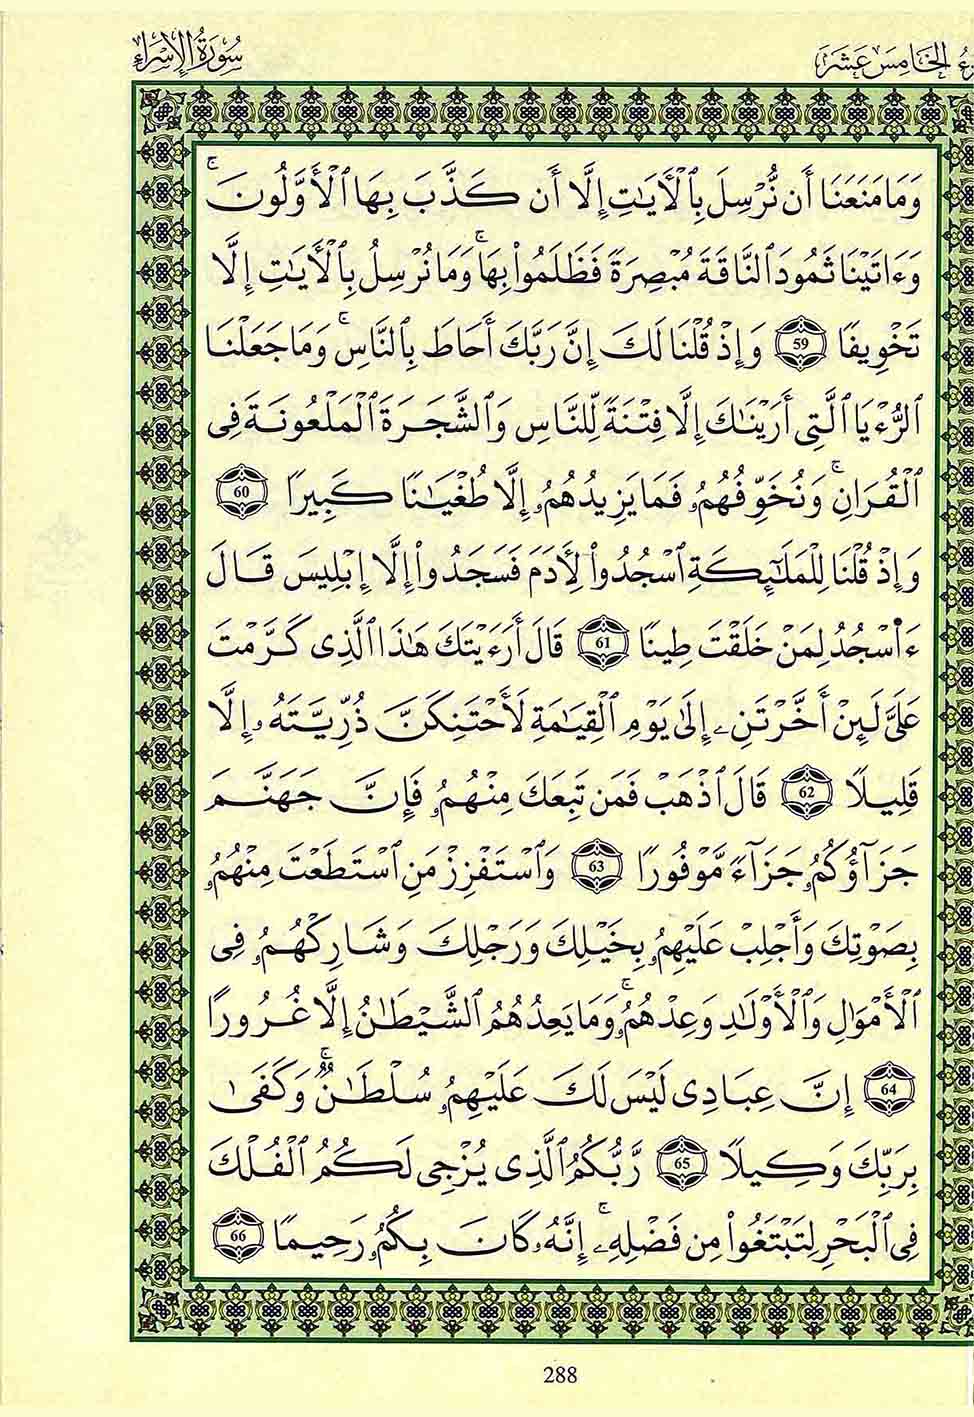 سُورَةُ الإِسْرَاء
الخَامِسَ عَشَرَ
وَمَا مَنَعَنَا أَن نُّرْسِلَ بِالْأَيَٰتِ إِلَّا أَن كَذَّبَ بِهَا الْأَوَّلُونَ ۚ
وَءَاتَيْنَا ثَمُودَ النَّاقَةَ مُبْصِرَةً فَظَلَمُواْ بِهَا ۚ وَمَا نُرْسِلُ بِالْأَيَٰتِ إِلَّا
تَخْوِيفًا 59 وَإِذْ قُلْنَا لَكَ إِنَّ رَبَّكَ أَحَاطَ بِالنَّاسِ ۚ وَمَا جَعَلْنَا
الرُّءْيَا الَّتِي أَرَيْنَٰكَ إِلَّا فِتْنَةً لِّلنَّاسِ وَالشَّجَرَةَ الْمَلْعُونَةَ فِي
الْقُرَانِ ۚ وَنُخَوِّفُهُمُۥ فَمَا يَزِيدُهُمُۥ إِلَّا طُغْيَٰنًا كَبِيرًا 60
وَإِذْ قُلْنَا لِلْمَلَٰٓئِكَةِ اسْجُدُواْ لِأَدَمَ فَسَجَدُواْ إِلَّا إِبْلِيسَ قَالَ
ءَا۬سْجُدُ لِمَنْ خَلَقْتَ طِينًا 61 قَالَ أَرَءَيْتَكَ هَٰذَا الَّذِي كَرَّمْتَ
عَلَيَّ لَئِنْ أَخَّرْتَنِۦ إِلَىٰ يَوْمِ الْقِيَٰمَةِ لَأَحْتَنِكَنَّ ذُرِّيَّتَهُۥ إِلَّا
قَلِيلًا 62 قَالَ اذْهَبْ فَمَن تَبِعَكَ مِنْهُمُۥ فَإِنَّ جَهَنَّمَ
جَزَآؤُكُمُۥ جَزَآءً مَّوْفُورًا 63 وَاسْتَفْزِزْ مَنِ اسْتَطَعْتَ مِنْهُمُۥ
بِصَوْتِكَ وَأَجْلِبْ عَلَيْهِمُۥ بِخَيْلِكَ وَرَجْلِكَ وَشَارِكْهُمُۥ فِي
الْأَمْوَٰلِ وَالْأَوْلَٰدِ وَعِدْهُمُۥ ۚ وَمَا يَعِدُهُمُ الشَّيْطَٰنُ إِلَّا غُرُورًا
64 إِنَّ عِبَادِي لَيْسَ لَكَ عَلَيْهِمُۥ سُلْطَٰنٌ ۚ وَكَفَىٰ
بِرَبِّكَ وَكِيلًا 65 رَّبُّكُمُ الَّذِي يُزْجِي لَكُمُ الْفُلْكَ
فِي الْبَحْرِ لِتَبْتَغُواْ مِن فَضْلِهِۦ ۚ إِنَّهُۥ كَانَ بِكُمُۥ رَحِيمًا 66
288